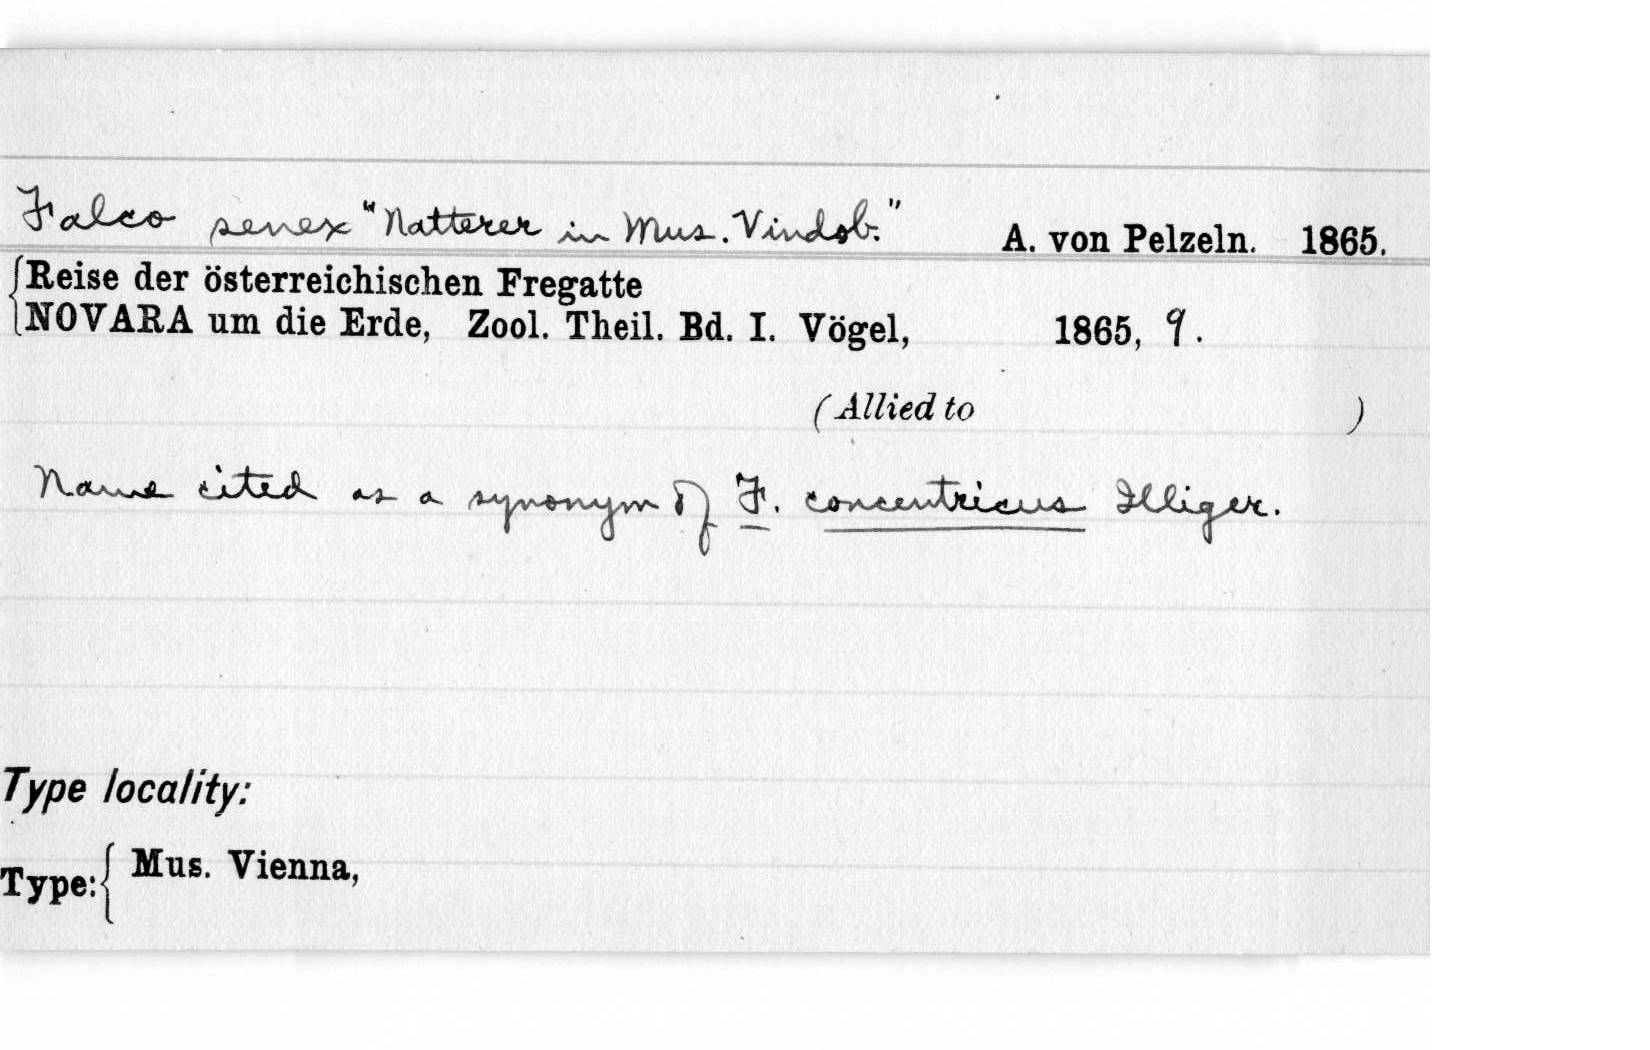 Falco senex "Natterer in Mus. Vindob." A. von Pelzeln. 1865.
Reise der österreichischen Fregatte
NOVARA um die Erde, Zool. Theil. Bd. I. Vögel, 1865, 9.
(Allied to )
Name cited as a synonym of F. concentricus Illiger.
Type locality:
Type: Mus. Vienna,